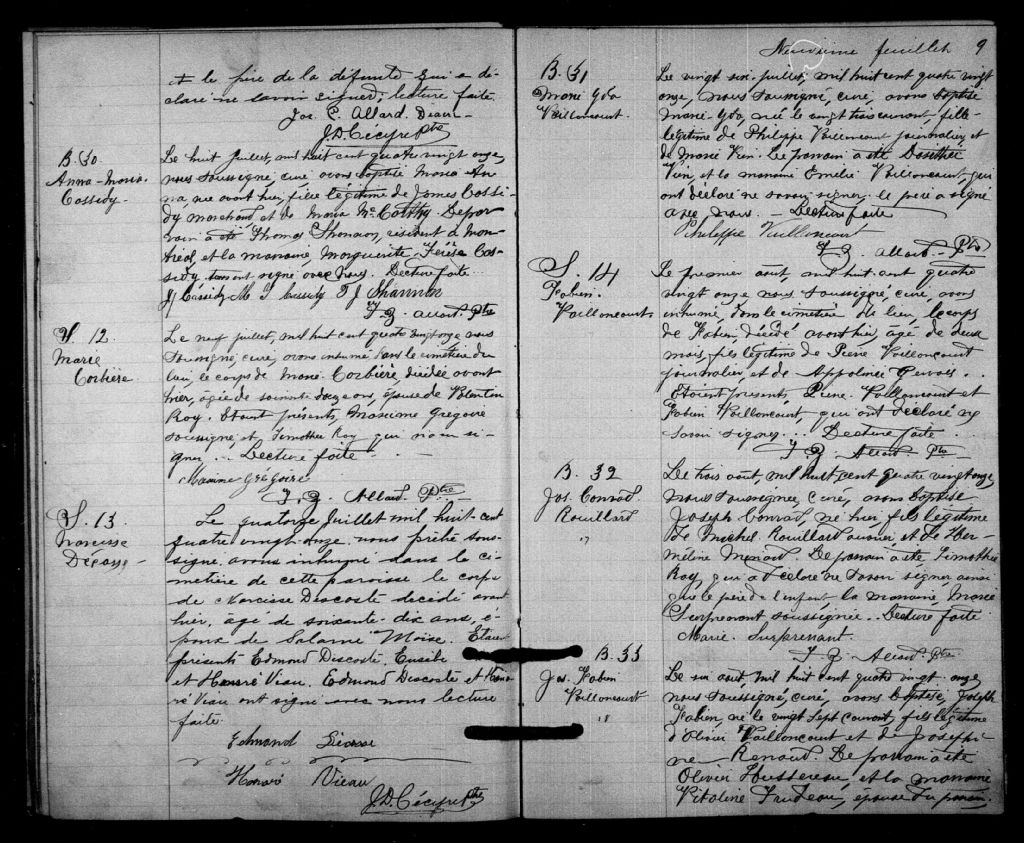 + le père de la défunte qui a dé-
claré ne savoir signer; lecture faite.
Jos. C. Allard. Diacre
J.D. Cécyre Ptre
B. 30
Anna-Maria.
Cassidy.
Le huit juillet, mil huit cent quatre vingt onze,
nous soussigné, curé avons baptisé Maria An-
na, née avant hier, fille légitime de James Cassi-
dy marchand et de Maria McCarthy. Le par-
rain a été Thomas Shannon, résident à Mon-
tréal, et la marraine Marguerite Térèse Cas-
sidy, signé avec nous. Lecture faite.
J Cassidy M T Cassidy T J Shannon
F.Z. Allard. Ptre
S. 12
Marie
Corbière
Le neuf juillet, mil huit cent quatre vingt onze nous
soussigné, curé, avons inhumé dans le cimetière du
lieu, le corps de Marie Corbière, décédée avant
hier, agée de soixante douze ans, épouse de Valentin
Roy. Etant présents, Maxime Grégoire
soussigné, et Timothée Roy qui n'a su si-
gner... Lecture faite.
Maxime Grégoire
F.Z. Allard. Ptre
S. 13
Narcisse
Décosse
Le quatorze Juillet mil huit-cent
quatre vingt-onze nous prêtre sous-
signé avons inhumé dans le ci-
metière de cette paroisse le corps
de Narcisse Descoste décédé avant
hier, âgé de soixante-dix ans, é-
poux de Salomé Moise. Etaient
présents Edmond Descoste, Eusèbe
et Honoré Viau. Edmond Descoste et Hono-
ré Viau ont signé avec nous lecture
faite.
Edmond Décosse
Honoré Vieau
J.D. Cécyre Ptre
Neuvième feuillet 9
B. 31
Marie Yda
Vaillancourt.
Le vingt six juillet, mil huit cent quatre vingt
onze, nous soussigné, curé, avons baptisé
Marie-Yda, née le vingt trois courant, fille
légitime de Philippe Vaillancourt journalier et
de Marie Vien. Le parrain a été Dosithée
Vien, et la marraine Emélie Vaillancourt, qui
ont déclaré ne savoir signer. le père a signé
avec nous. - Lecture faite
Philippe Vaillancourt
F.Z. Allard. Ptre
S. 14
Fabien.
Vaillancourt.
Le premier août, mil huit cent quatre
vingt onze nous soussigné, curé, avons
inhumé, dans le cimetière du lieu, le corps
de Fabien, décédé avant hier, âgé de deux
mois, fils légitime de Pierre Vaillancourt
journalier, et de Appoline Gervais.
Etaient présents Pierre Vaillancourt et
Fabien Vaillancourt, qui ont déclaré ne
savoir signer... Lecture faite.
F.Z. Allard Ptre
B. 32
Jos. Conrad
Rouillard
"
Le trois août, mil huit cent quatre vingt onze,
nous soussigné, curé, avons baptisé
Joseph Conrad, né hier, fils légitime
de Michel Rouillard ouvrier et de Her-
méline Ménard. Le parrain a été Timothée
Roy, qui a déclaré ne savoir signer ainsi
que le père de l'enfant la marraine, Marie
Surprenant soussignée.. Lecture faite
Marie. Surprenant.
F.Z. Allard. Ptre
B. 33
Jos. Fabien
Vaillancourt
"
Le six août mil huit cent quatre vingt onze,
nous soussigné, curé, avons baptisé, Joseph
Fabien, né le vingt sept courant, fils légitime
d'Olivier Vaillancourt et de Josephi-
ne Renaud. Le parrain a été
Olivier Hussereau et la marraine
Vitaline Trudeau, épouse du parrain.